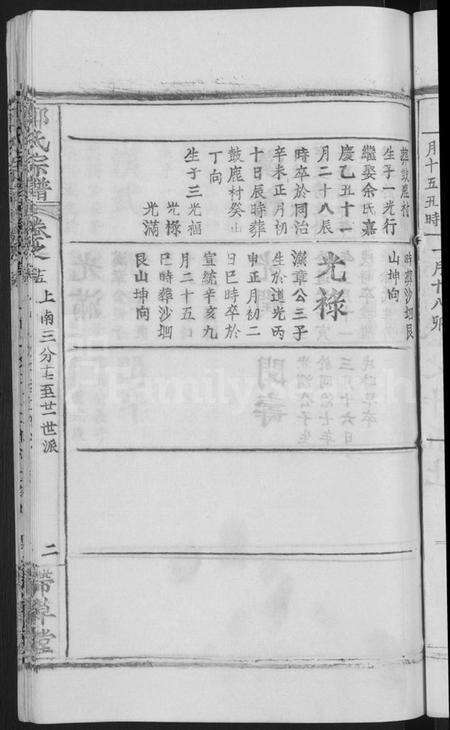 葬鼓鹿村
生子一光行
繼娶余氏嘉
慶乙丑十一
月二十八辰
時卒於同治
辛未正月初
十日辰時葬
鼓鹿村癸山
丁向
生子三光福
光祿
光滿
時葬沙堌艮
山坤向
光祿
瀛章公三子
生於道光丙
申正月初二
日巳時卒於
宣統辛亥九
月二十五
巳時葬沙堌
艮山坤向
氏宗譜
卷之
上南三分十七至廿一世派
二
帶草堂
月十五丑時
一月十八卯